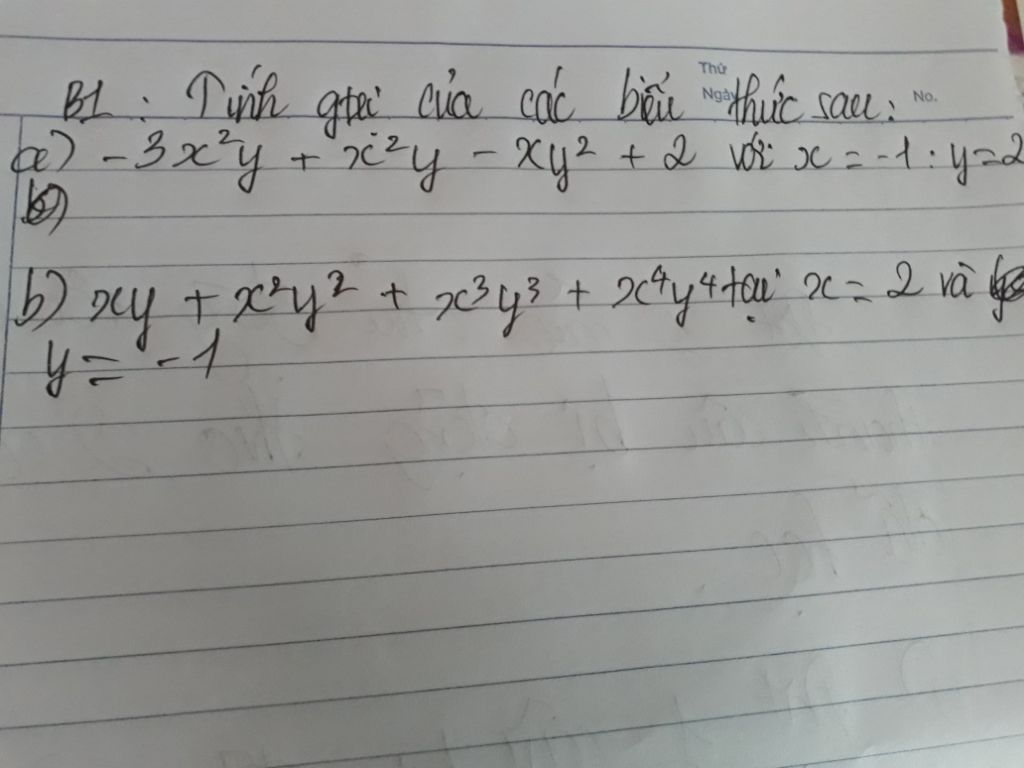 Thứ
Ngày
No.
B1: Tính gtrị của các biểu thức sau:
a) -3x²y + x²y - xy² + 2 với x = -1 : y = 2
b) xy + x²y² + x³y³ + x⁴y⁴ tại x = 2 và
y = -1